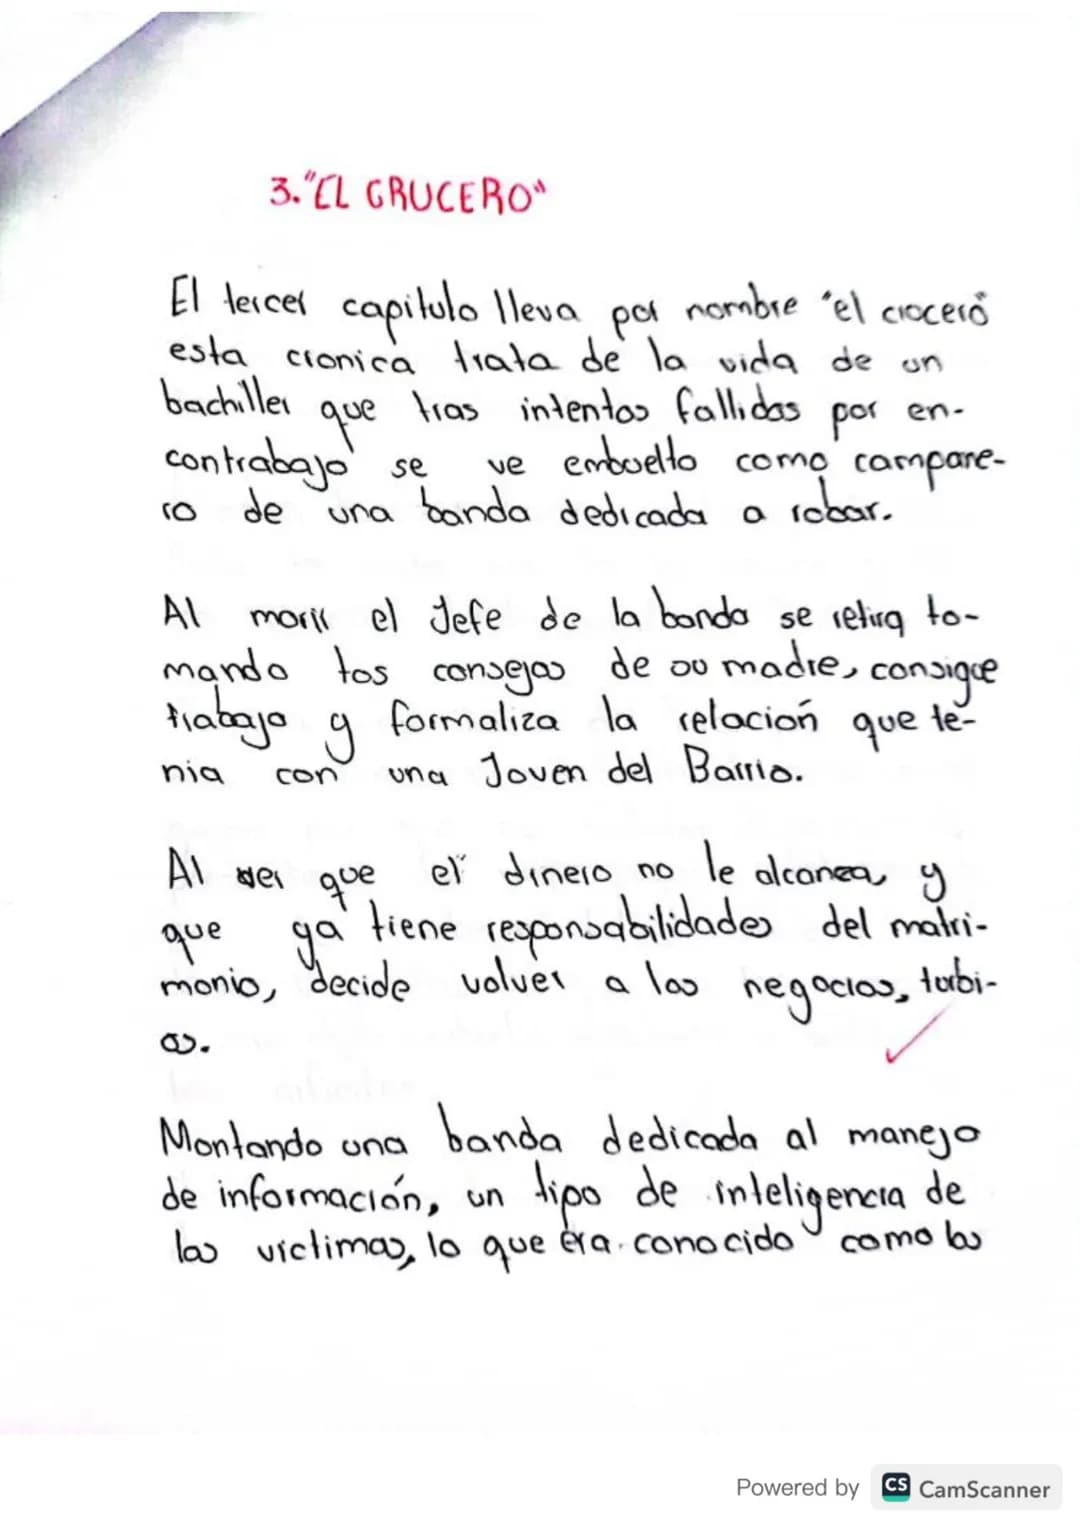 3."EL CRUCERO"
El tercer capitulo lleva por nombre "el crucero"
esta cronica trata de la vida de un
bachiller que tras intentos fallidos por en-
contrabajo se ve embuelto como campane-
ro de una banda dedicada a robar.
Al morir el Jefe de la banda se retira to-
mando los consejos de su madre, consigue
trabajo y formaliza la relación que te-
nia con una Joven del Barrio.
Al ver que el dinero no le alcanza, y
que ya tiene responsabilidades del matri-
monio, decide volver a los negocios, turbi-
os.
Montando una banda dedicada al manejo
de información, un tipo de inteligencia de
las victimas, lo que era conocido como los
Powered by CS CamScanner